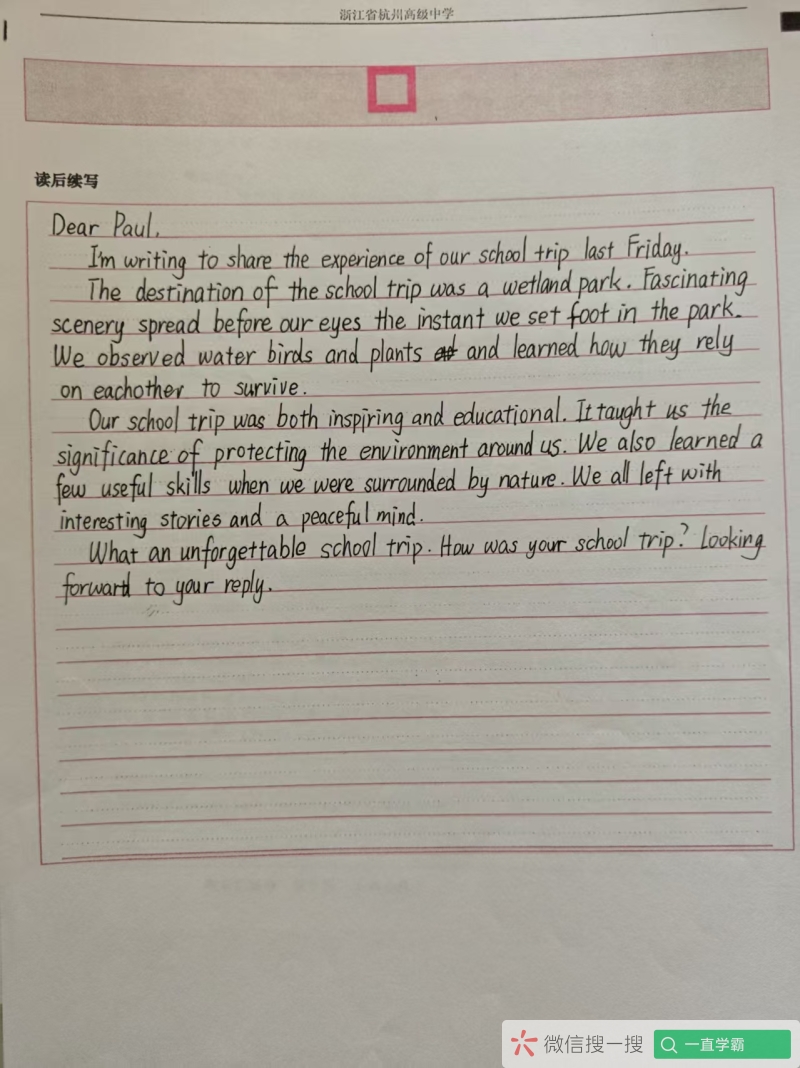 浙江省杭州高级中学
读后续写
Dear Paul,
I'm writing to share the experience of our school trip last Friday.
The destination of the school trip was a wetland park. Fascinating
scenery spread before our eyes the instant we set foot in the park.
We observed water birds and plants and learned how they rely
on eachother to survive.
Our school trip was both inspiring and educational. It taught us the
significance of protecting the environment around us. We also learned a
few useful skills when we were surrounded by nature. We all left with
interesting stories and a peaceful mind.
What an unforgettable school trip. How was your school trip? Looking
forward to your reply.
微信搜一搜
一直学霸